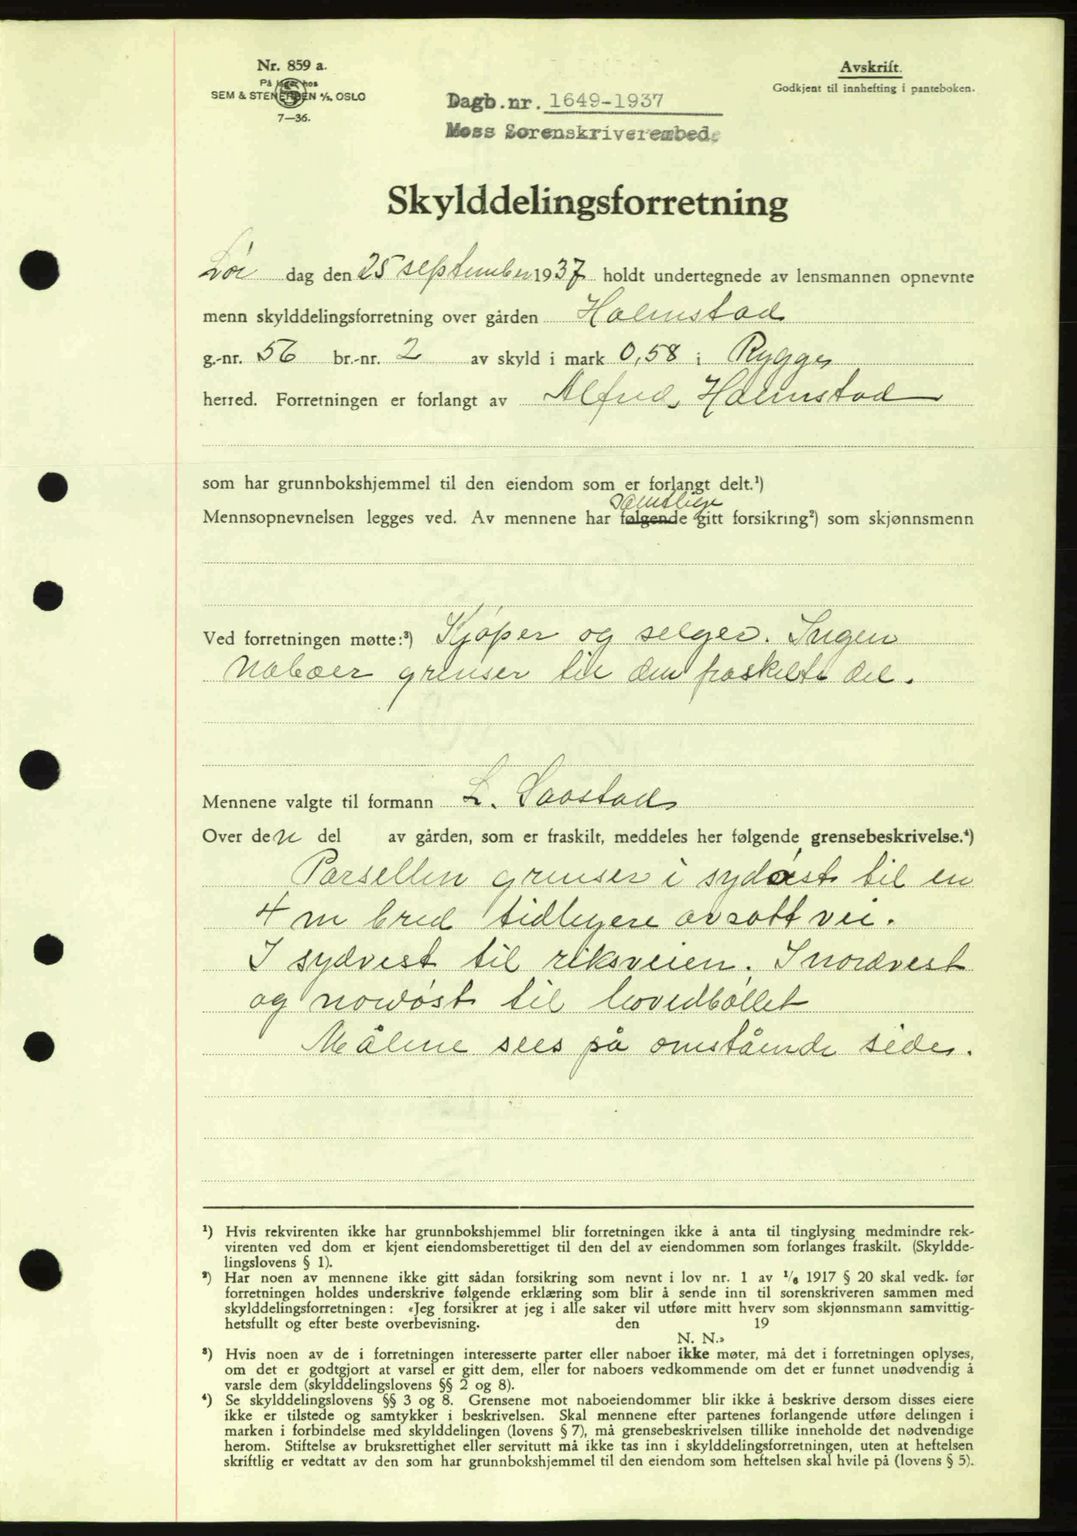 Nr. 859 a.
På lager hos
SEM & STENERSEN A/S, OSLO
7—36.
Avskrift.
Godkjent til innhefting i panteboken.
Dagb.nr. 1649-1937
Moss Sorenskriverembede
Skylddelingsforretning
Lør dag den 25 september 1937 holdt undertegnede av lensmannen opnevnte
menn skylddelingsforretning over gården Halmstad
g.-nr. 56 br.-nr. 2 av skyld i mark 0,58 i Rygge
herred. Forretningen er forlangt av Alfred Halmstad
som har grunnbokshjemmel til den eiendom som er forlangt delt.¹)
samtlige
Mennsopnevnelsen legges ved. Av mennene har følgende gitt forsikring²) som skjønnsmenn
Ved forretningen møtte:³) Kjøper og selger. Ingen
naboer grenser til den fraskilte del.
Mennene valgte til formann L. Saastad
Over den del av gården, som er fraskilt, meddeles her følgende grensebeskrivelse.⁴)
Parsellen grenser i sydøst til en
4 m bred tidligere avsatt vei.
I sydvest til riksveien. I nordvest
og nordøst til hovedbøllet
Målene sees på omstående side.
¹) Hvis rekvirenten ikke har grunnbokshjemmel blir forretningen ikke å anta til tinglysing medmindre rek-
virenten ved dom er kjent eiendomsberettiget til den del av eiendommen som forlanges fraskilt. (Skyldde-
lingslovens § 1).
²) Har noen av mennene ikke gitt sådan forsikring som nevnt i lov nr. 1 av 1/6 1917 § 20 skal vedk. før
forretningen holdes underskrive følgende erklæring som blir å sende inn til sorenskriveren sammen med
skylddelingsforretningen: «Jeg forsikrer at jeg i alle saker vil utføre mitt hverv som skjønnsmann samvittig-
hetsfullt og efter beste overbevisning. den 19
N. N.»
³) Hvis noen av de i forretningen interesserte parter eller naboer ikke møter, må det i forretningen oplyses,
om det er godtgjort at varsel er gitt dem, eller for naboers vedkommende om det er funnet unødvendig å
varsle dem (skylddelingslovens §§ 2 og 8).
⁴) Se skylddelingslovens §§ 3 og 8. Grensene mot naboeiendommer blir ikke å beskrive dersom disses eiere
ikke er tilstede og samtykker i beskrivelsen. Skal mennene efter partenes forlangende utføre delingen i
marken i forbindelse med skylddelingen (lovens § 7), må grensebeskrivelsen tillike inneholde det nødvendige
herom. Stiftelse av bruksrettighet eller servitutt må ikke tas inn i skylddelingsforretningen, uten at heftelsen
skriftlig er vedtatt av den som har grunnbokshjemmel til den eiendom som heftelsen skal hvile på (lovens § 5).